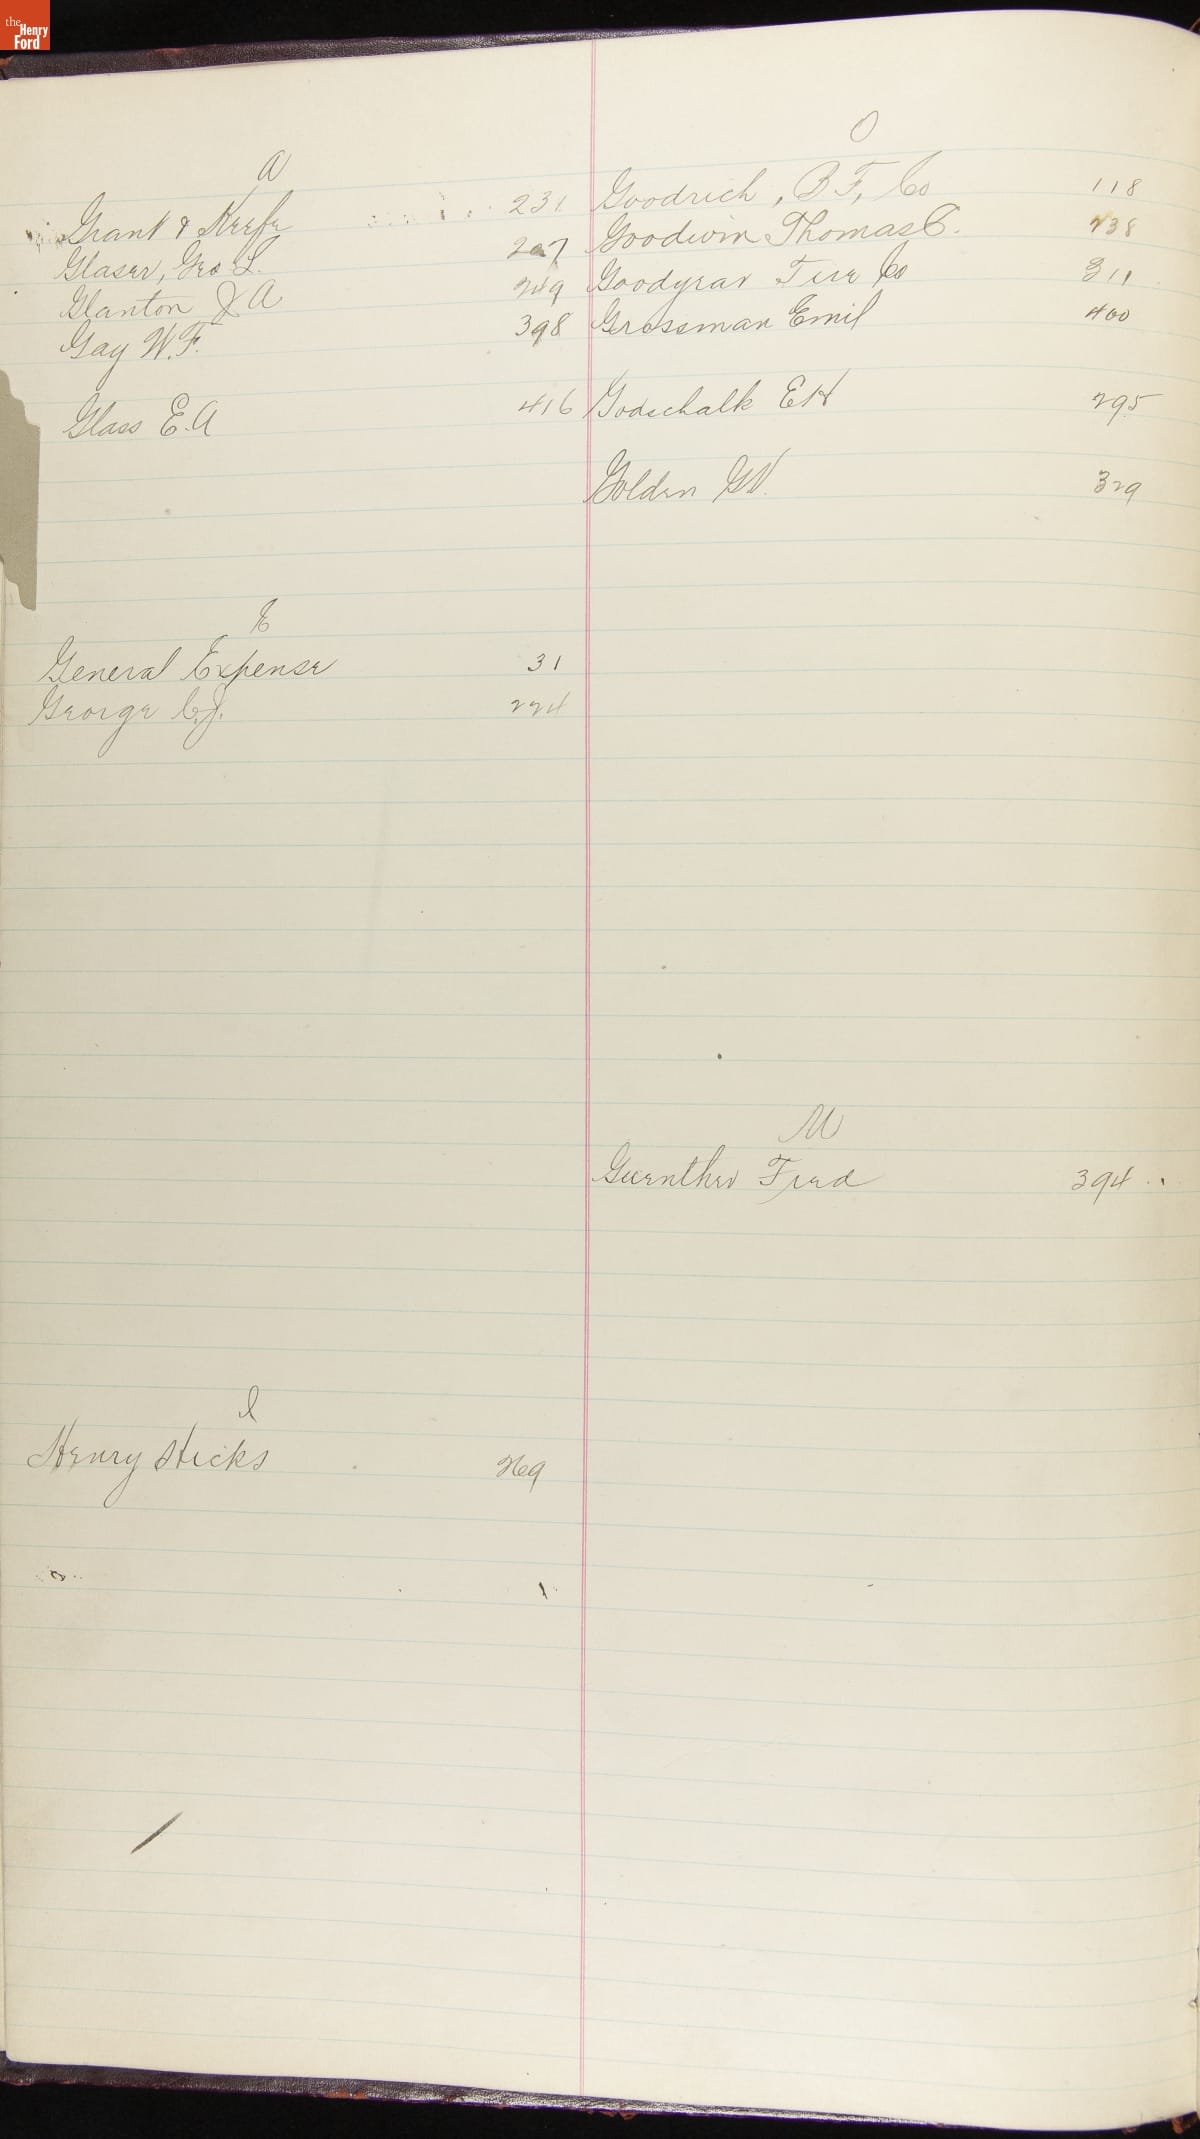 the
Henry
Ford
A
Grant & Keefe 231
Glaser, Geo L. 207
Glanton J A 249
Gay W. F. 398
Glass E. A 416
E
General Expense 31
George C. J. 224
I
Henry Hicks 269
O
Goodrich, B F, Co 118
Goodwin Thomas C. 238
Goodyear Tire Co 311
Grossman Emil 400
Godschalk E H 295
Golden G V. 329
U
Guenther Fred 394